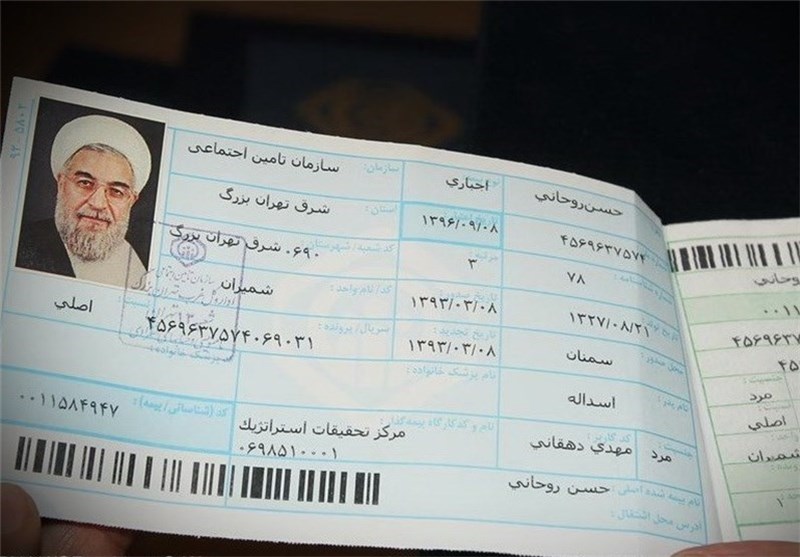 حسن‌روحاني
اجباري
سازمان:
سازمان تامین اجتماعی
۴۵۶۹۶۳۷۵۷۴
۱۳۹۶/۰۹/۰۸
استان:
شرق تهران بزرگ
۷۸
۳
کد شعبه/ شهرستان:
۰۶۹۰ شرق تهران بزرگ
۱۳۲۷/۰۸/۲۱
تاریخ صدور:
۱۳۹۳/۰۳/۰۸
کد/ نام واحد:
شمیران
محل صدور:
سمنان
تاریخ تجدید:
۱۳۹۳/۰۳/۰۸
سریال/ پرونده:
۴۵۶۹۶۳۷۵۷۴۰۶۹۰۳۱
اصلي
نام پدر:
اسداله
نام پزشک خانواده:
کد پزشک خانواده:
جنسیت:
مرد
کد کاربر:
مهدي دهقاني
نام و کدکارگاه بیمه‌گذار:
مرکز تحقیقات استراتژیك
۰۶۹۸۵۱۰۰۰۱
کد (شناسائی/ بیمه):
۰۰۱۱۵۸۴۹۴۷
نام بیمه شده اصلی:
حسن روحاني
آدرس محل اشتغال:
جنسیت:
مرد
اصلي
شمیران